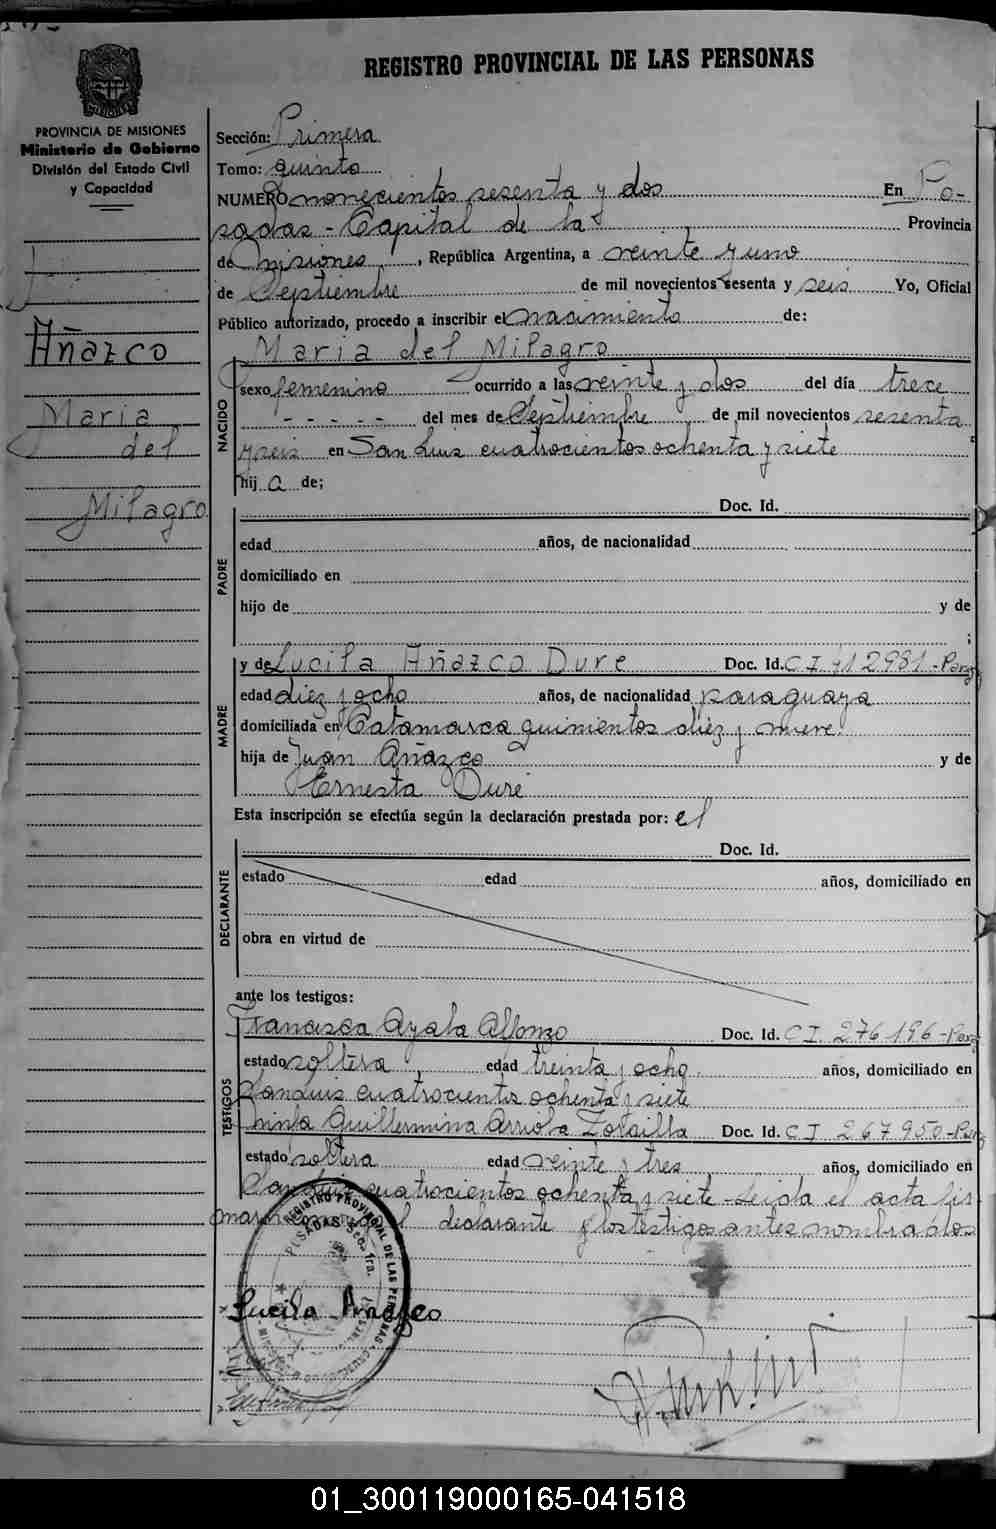 REGISTRO PROVINCIAL DE LAS PERSONAS
PROVINCIA DE MISIONES
Ministerio de Gobierno
División del Estado Civil
y Capacidad
Añazco
Maria
del
Milagro
Sección: Primera
Tomo: quinto
NUMERO novecientos sesenta y dos En Po-
sadas - Capital de la Provincia
de Misiones, República Argentina, a veinte y uno
de Septiembre de mil novecientos sesenta y seis Yo, Oficial
Público autorizado, procedo a inscribir el nacimiento de:
Maria del Milagro
NACIDO
sexo femenino ocurrido a las veinte y dos del día trece
- - - - - del mes de Septiembre de mil novecientos sesenta
y seis en San Luis cuatrocientos ochenta y siete
hij a de;
PADRE
Doc. Id.
edad años, de nacionalidad
domiciliado en
hijo de y de
;
MADRE
y de Lucila Añazco Dure Doc. Id. C I 412981-Parg
edad diez y ocho años, de nacionalidad paraguaya
domiciliada en Catamarca quinientos diez y nueve.
hija de Juan Añazco y de
Ernesta Duré
Esta inscripción se efectúa según la declaración prestada por: el
DECLARANTE
Doc. Id.
estado edad años, domiciliado en
obra en virtud de
ante los testigos:
TESTIGOS
Francisca Ayala Alfonzo Doc. Id. C I. 276196-Parg
estado soltera edad treinta y ocho años, domiciliado en
San Luis cuatrocientos ochenta y siete
Ninfa Guillermina Arriola Zorailla Doc. Id. C I 267950-Parg
estado soltera edad veinte y tres años, domiciliado en
San Luis cuatrocientos ochenta y siete - Leida el acta fir-
man el declarante y los testigos antes nombrados
REGISTRO PROVINCIAL DE LAS PERSONAS
POSADAS Sec. 1ra.
Lucila Añazco
01_300119000165-041518